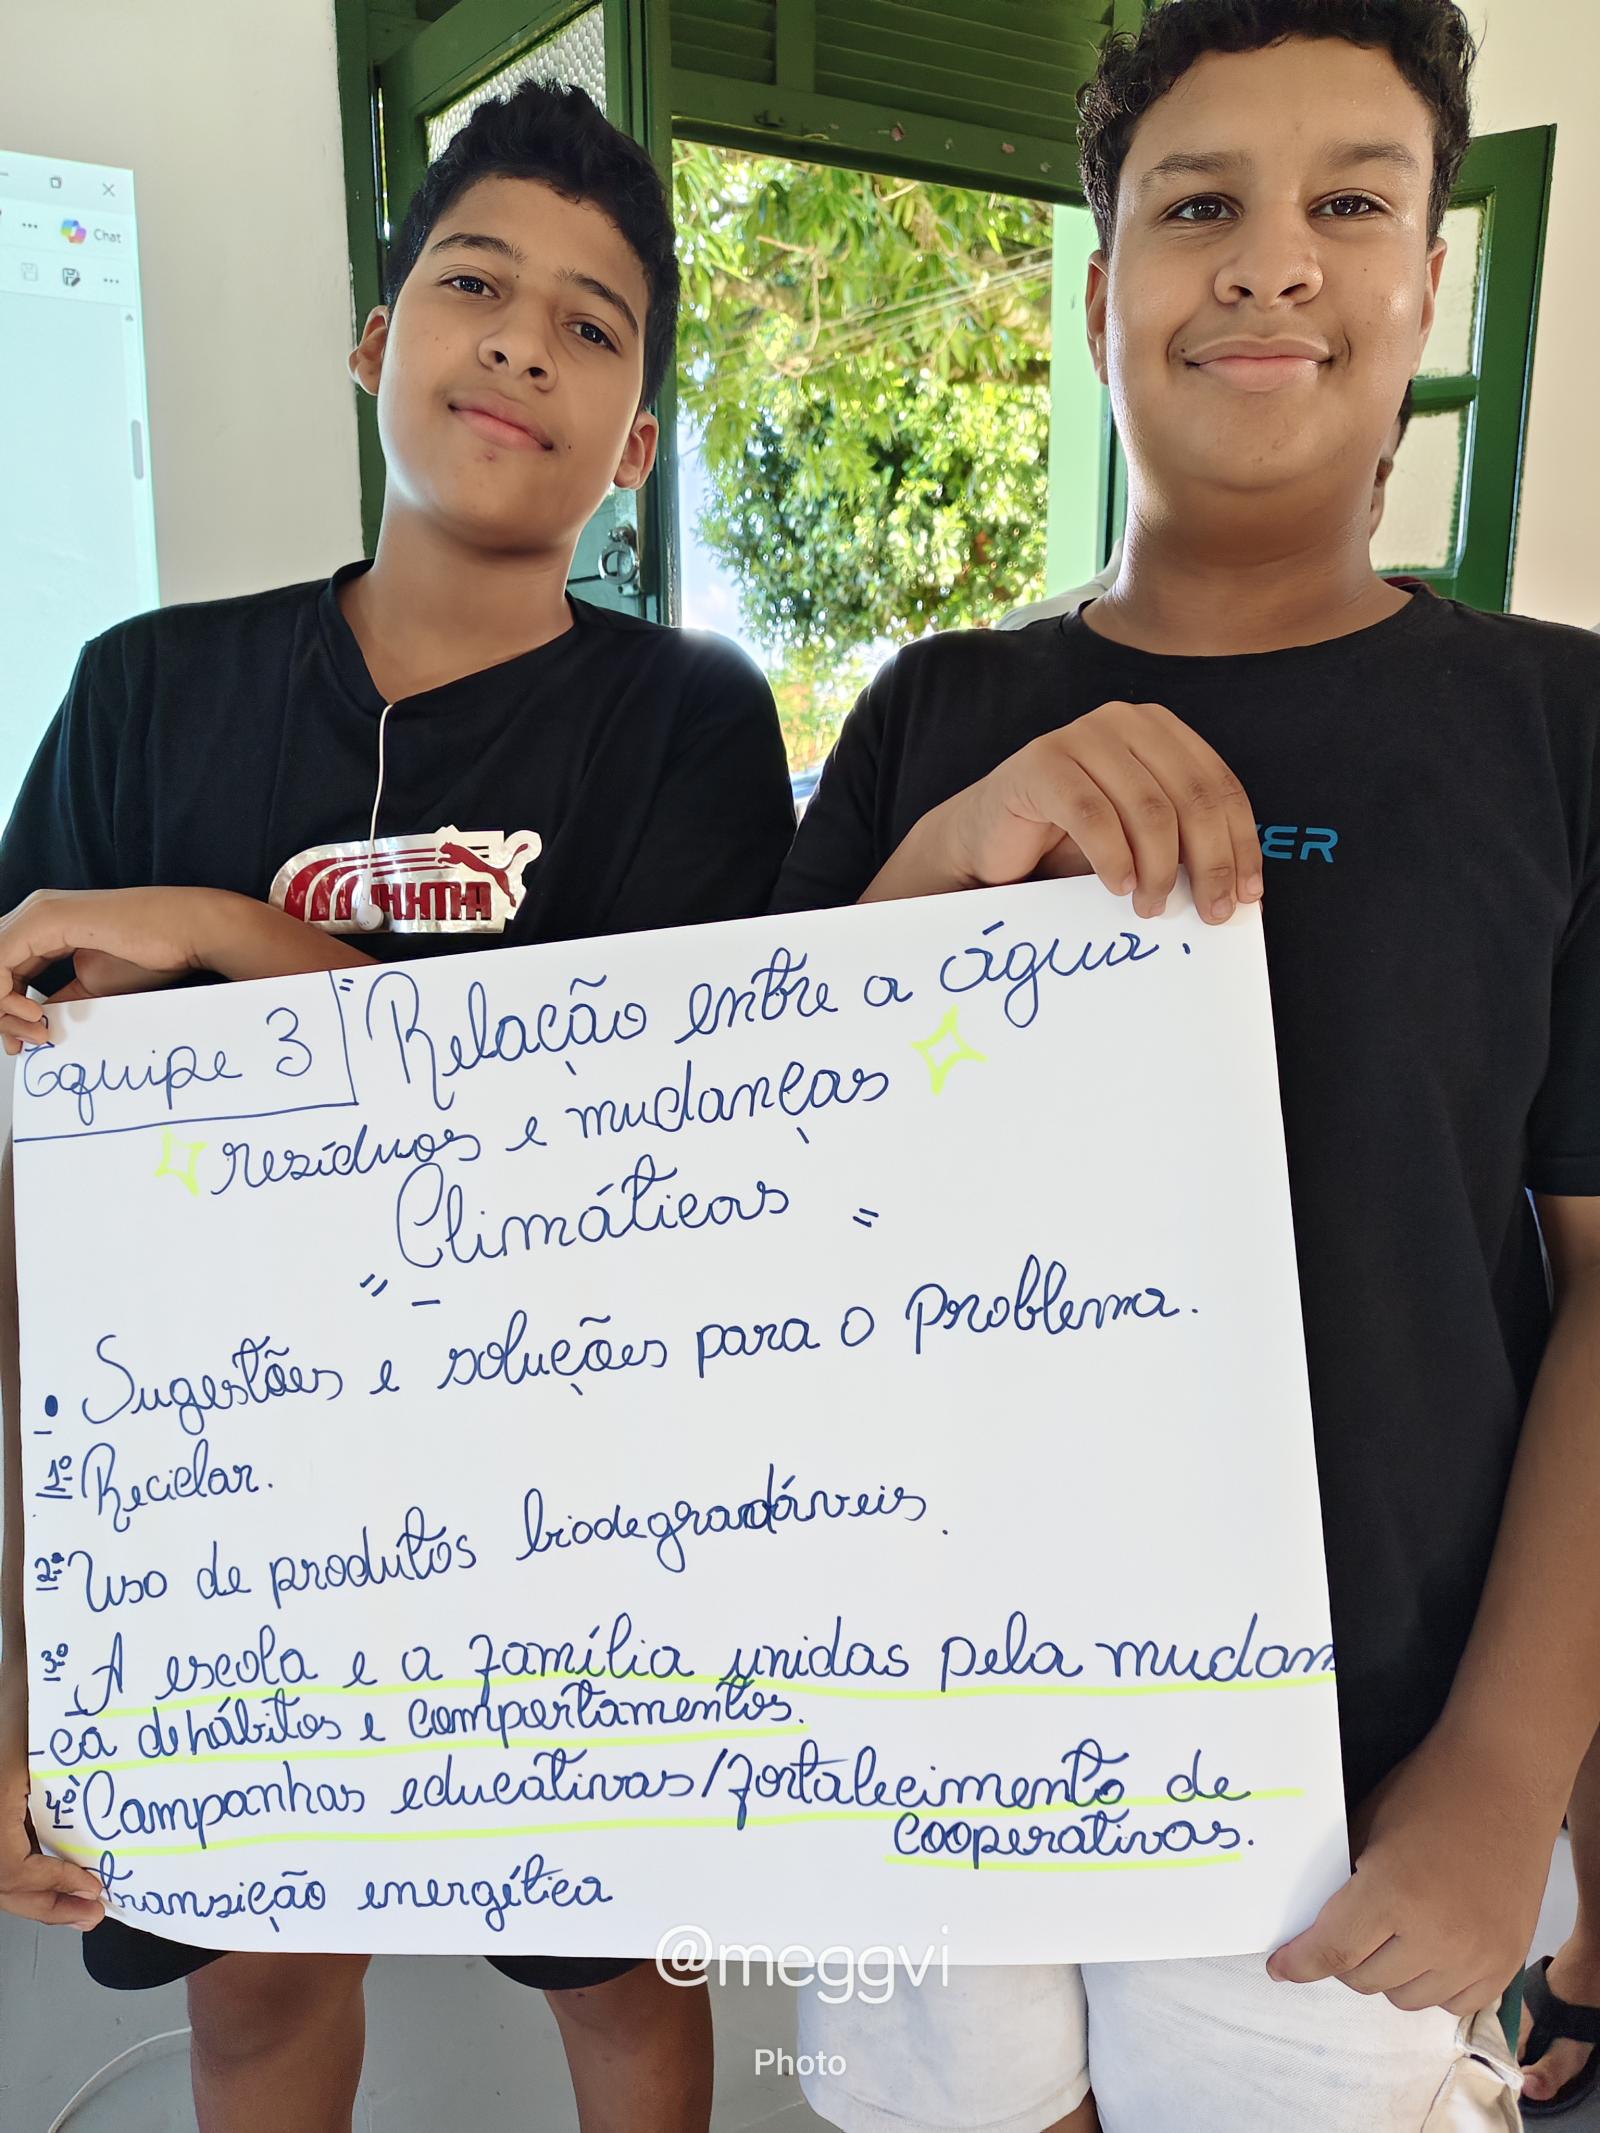 Chat
PUMA
ER
Equipe 3
"Relação entre a água.
resíduos e mudanças
Climáticas "
• Sugestões e soluções para o problema.
1º Reciclar.
2ª Uso de produtos biodegradáveis.
3º A escola e a família unidas pela mudan
-ça de hábitos e comportamentos.
4º Campanhas educativas/fortalecimento de
cooperativas.
transição energética
@meggvi
Photo